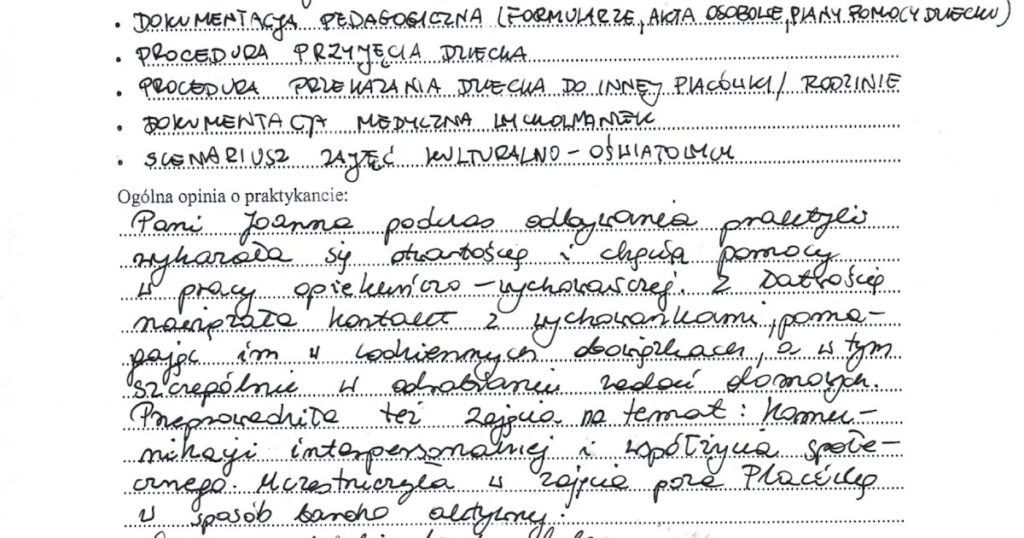 • DOKUMENTACJA PEDAGOGICZNA (FORMULARZE, AKTA OSOBOWE, PLANY POMOCY DZIECKU)
• PROCEDURA PRZYJĘCIA DZIECKA
• PROCEDURA PRZEKAZANIA DZIECKA DO INNEJ PLACÓWKI / RODZINIE
• DOKUMENTACJA MEDYCZNA WYCHOWANEK
• SCENARIUSZ ZAJĘĆ KULTURALNO - OŚWIATOWYCH
Ogólna opinia o praktykancie:
Pani Joanna podczas odbywania praktyki
wykazała się otwartością i chęcią pomocy
w pracy opiekuńczo - wychowawczej. Z łatwością
nawiązała kontakt z wychowankami, poma-
gając im w codziennych obowiązkach, a w tym
szczególnie w odrabianiu zadań domowych.
Przeprowadziła też zajęcia na temat: komu-
nikacji interpersonalnej i współżycia społe-
cznego. Uczestniczyła w zajęcia poza Placówką
w sposób bardzo aktywny.